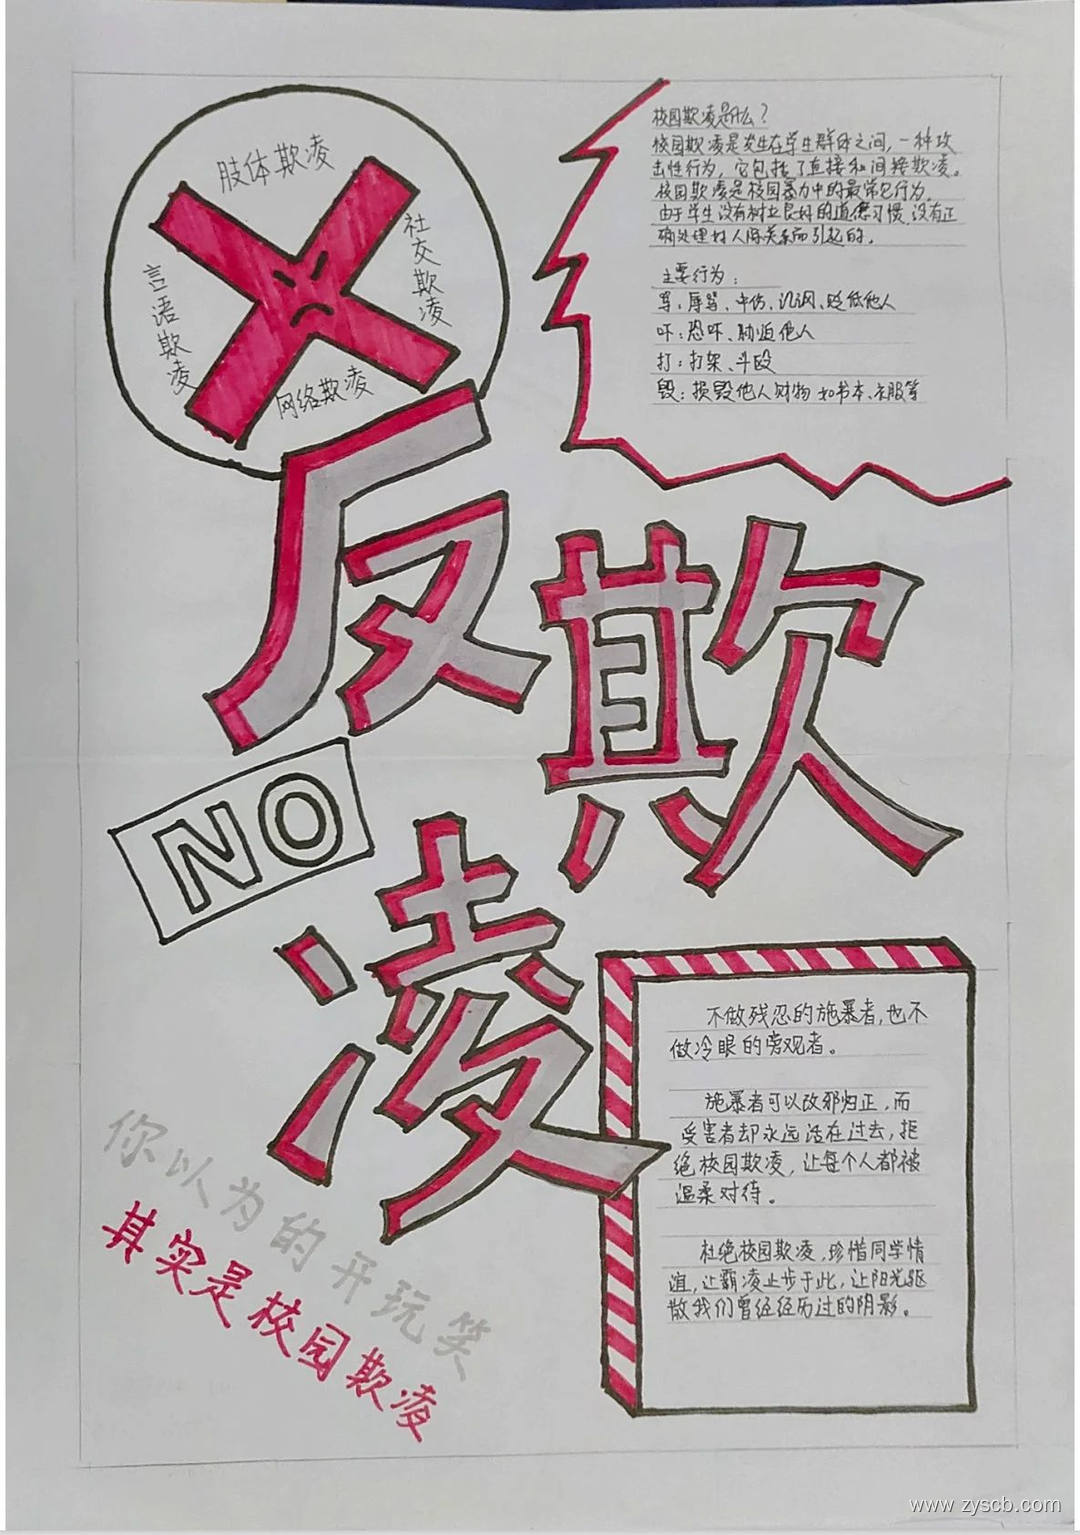 肢体欺凌
社交欺凌
言语欺凌
网络欺凌
校园欺凌是什么？
校园欺凌是发生在学生群体之间，一种攻
击性行为，它包括了直接和间接欺凌。
校园欺凌是校园暴力中的最常见行为。
由于学生没有树立良好的道德习惯，没有正
确处理好人际关系而引起的。
主要行为：
骂：辱骂、中伤、讥讽、贬低他人
吓：恐吓、胁迫他人
打：打架、斗殴
毁：损毁他人财物 如书本、衣服等
反
欺
凌
NO
不做残忍的施暴者，也不
做冷眼的旁观者。
施暴者可以改邪归正，而
受害者却永远活在过去，拒
绝校园欺凌，让每个人都被
温柔对待。
杜绝校园欺凌，珍惜同学情
谊，让霸凌止步于此，让阳光驱
散我们曾经经历过的阴影。
你以为的开玩笑
其实是校园欺凌
www.zyscb.com